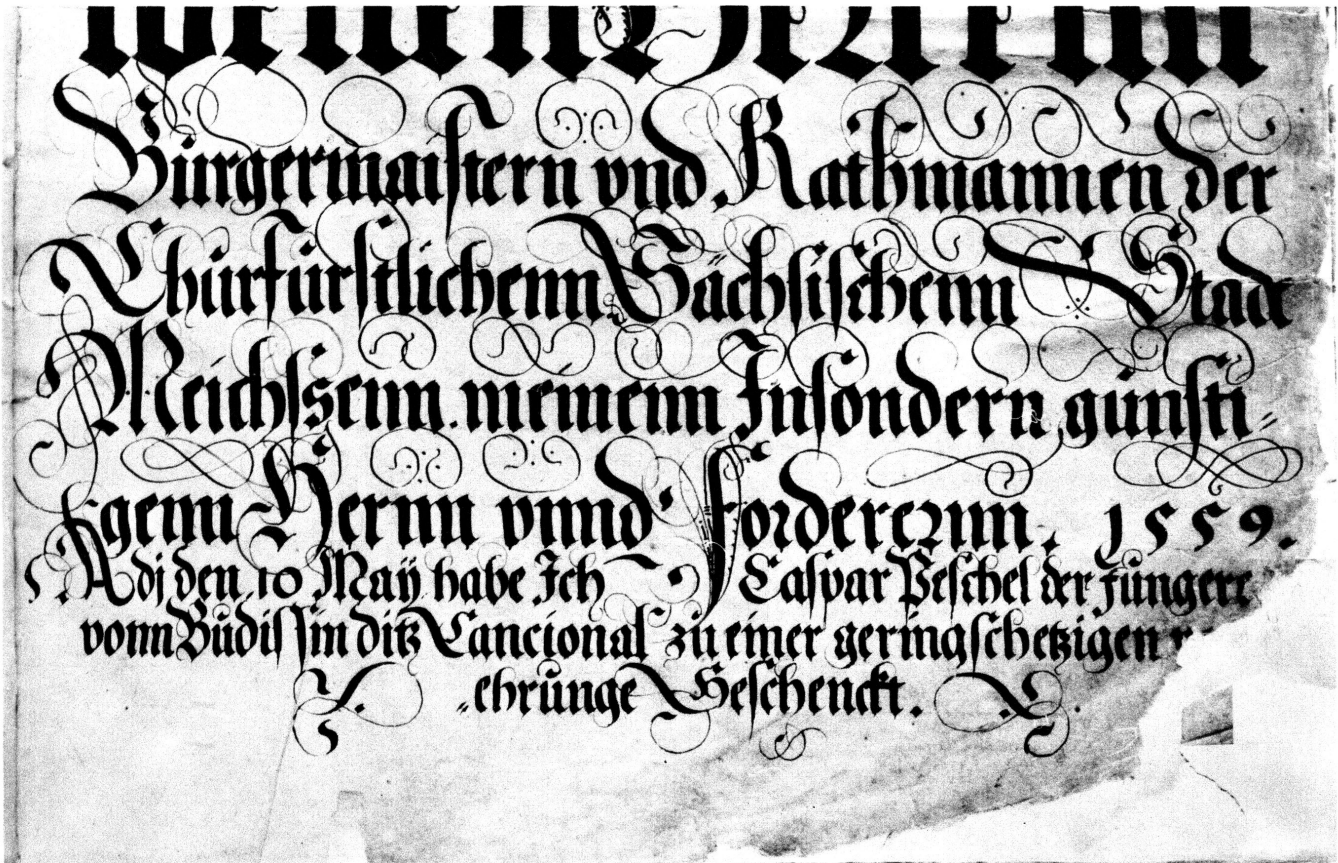 Bürgermaistern vnd Rathmannen der
Churfürstlichenn Sächsischenn Stadt
Meichssenn. meinenn Insondern günsti⸗
genn Hernn vnnd fordererznn. 1559.
Adj den 10 Maÿ habe Ich Caspar Peschel der Jüngere
vonn Büdissin ditz Cancional zu einer geringschetzigen
⸗ehrunge Geschenckt.